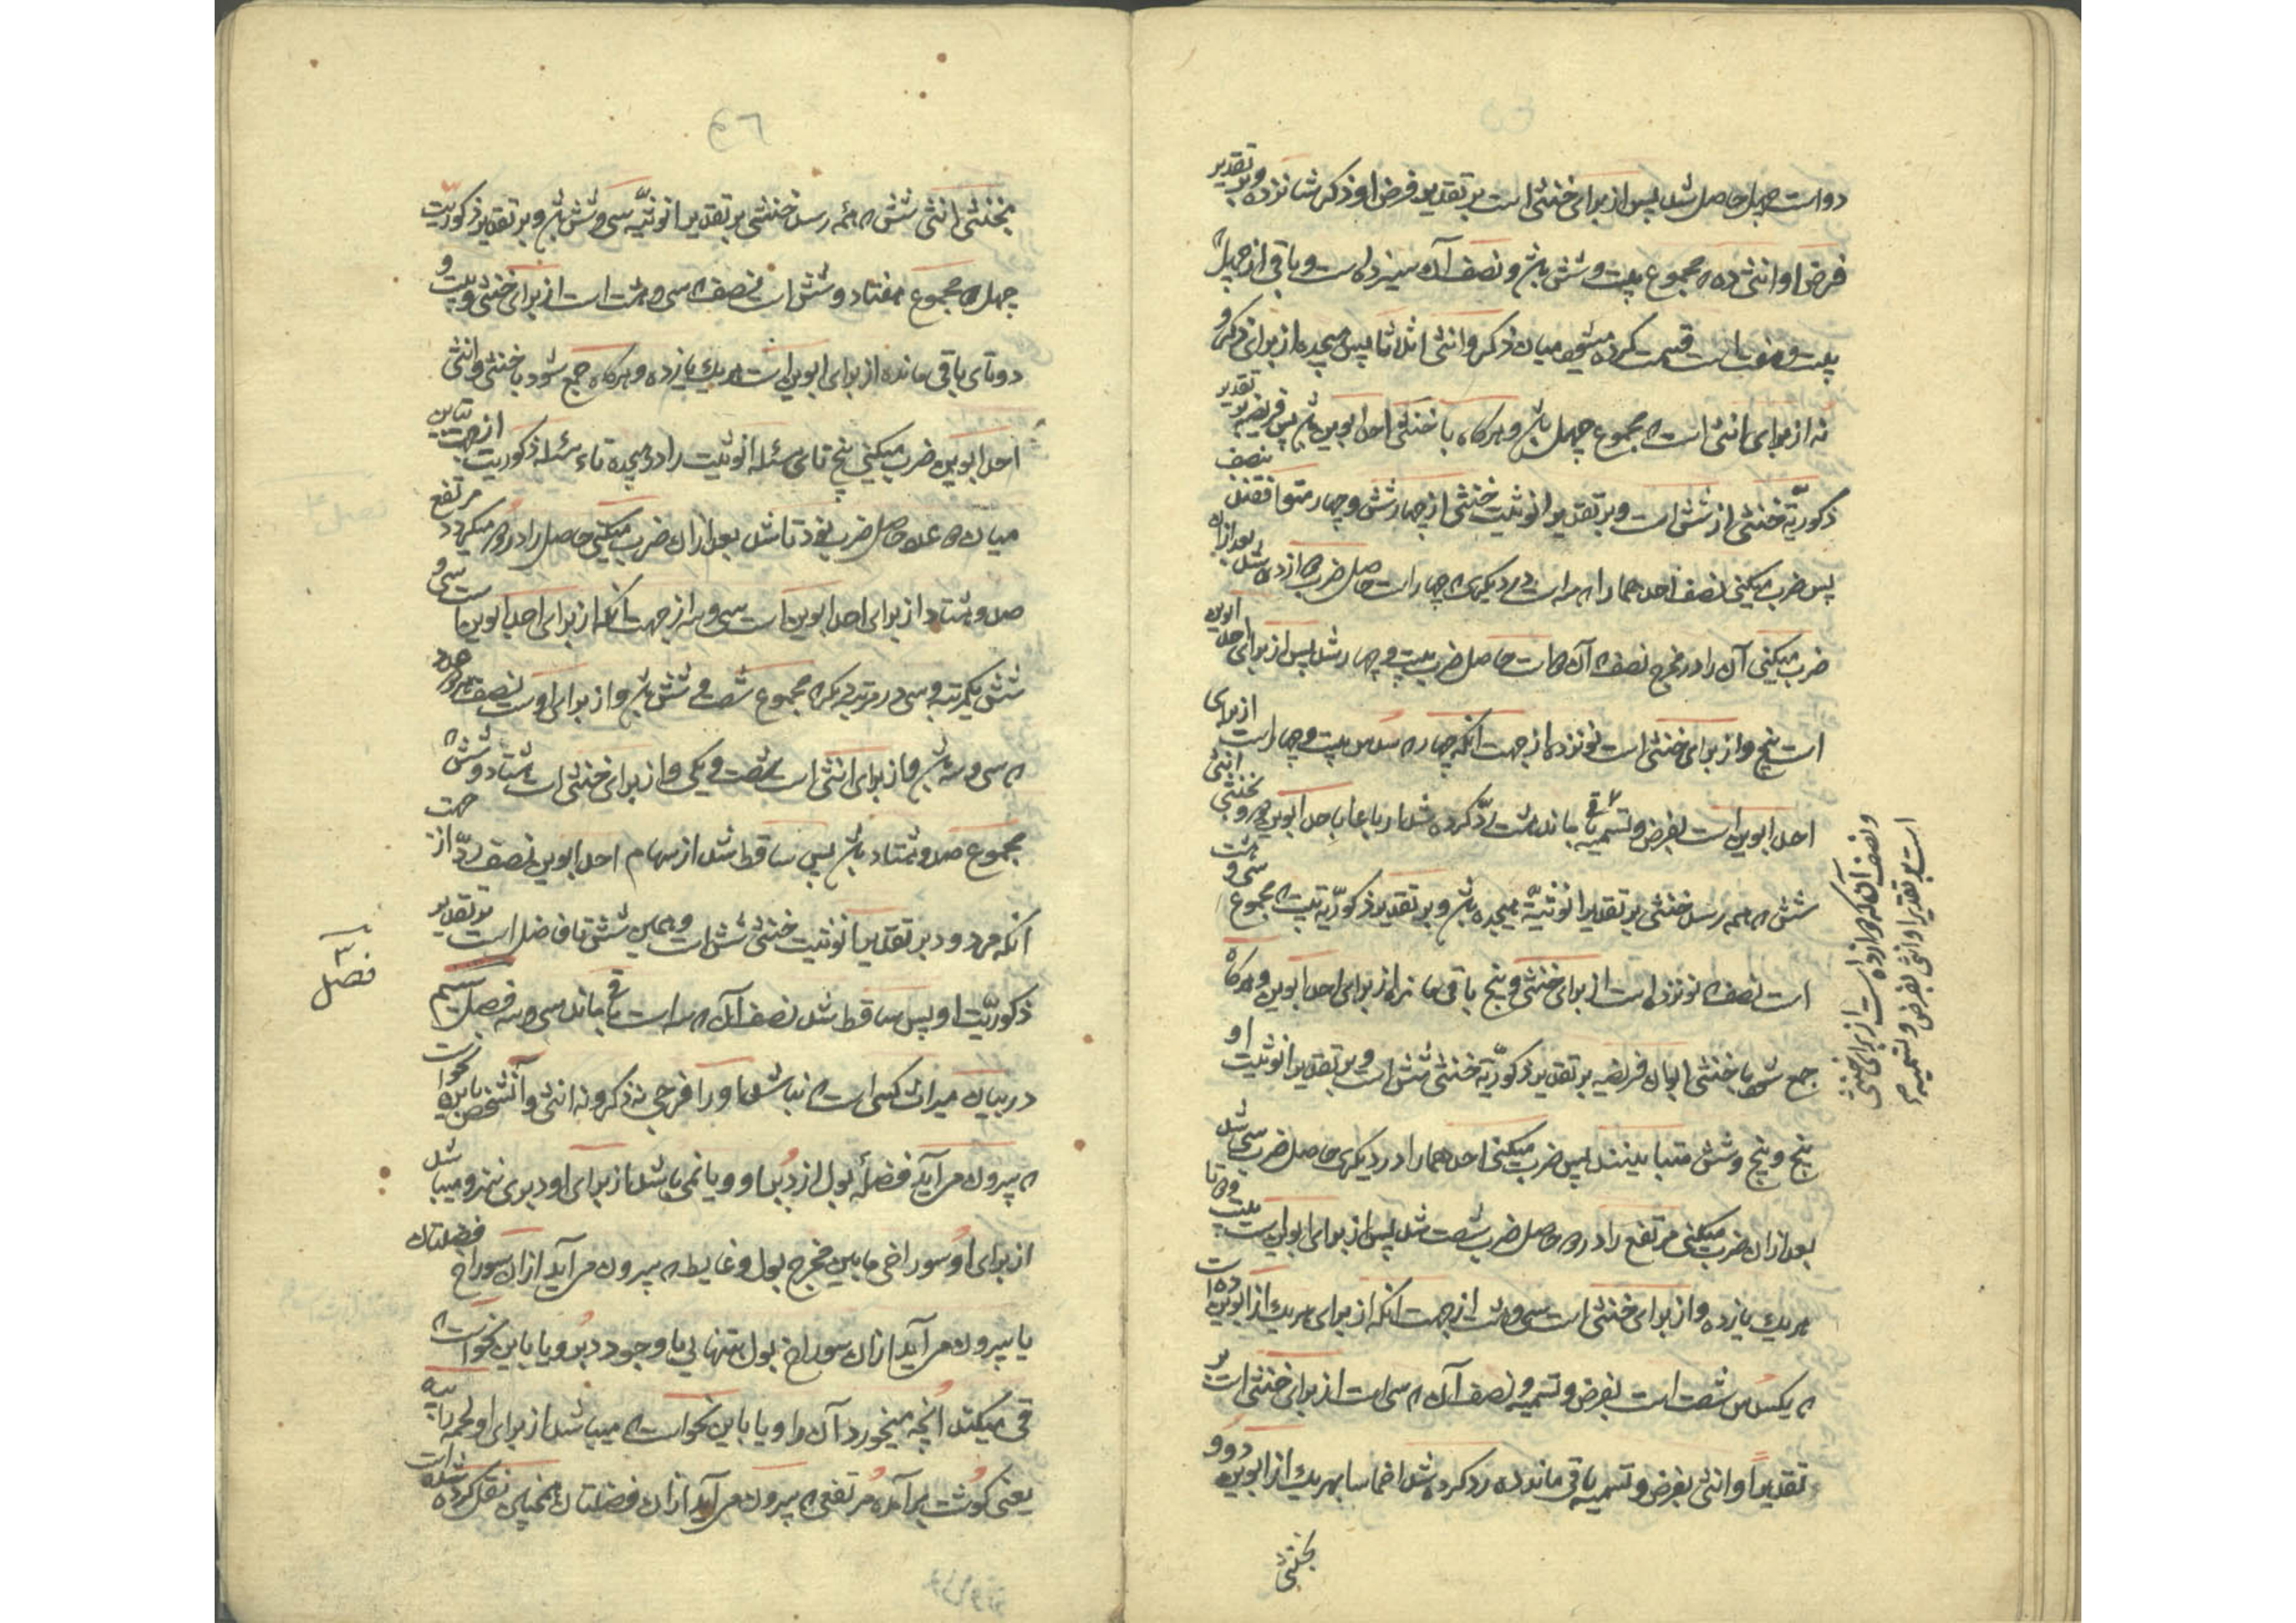 دو است چهل حاصل شد پس از برای خنثی است بر تقدیر فرض او ذکر شانزده و بر تقدیر
فرض او انثی ده که مجموع بیست و شش باشد و نصف آن که سیزده است و باقی از چهل که
بیست و هفت است قسمت کرده میشود میان ذکر و انثی اثلاثا پس هیجده از برای ذکر و
نه از برای انثی است که مجموع چهل باشد و هرکاه با خنثی احد ابوین باشد پس فریضه بر تقدیر
ذکوریّة خنثی از شش است و بر تقدیر انوثیت خنثی از چهار شش و چهار متوافقند بنصف
پس ضرب میکنی نصف احدهما را که سه است در دیکری که چهار است حاصل ضرب دوازده شد بعد از آن
ضرب میکنی آن را در مخرج نصف که آن دو است حاصل ضرب بیست و چهار شد پس از برای احد ابوین
است پنج و از برای خنثی است نوزده از جهت آنکه چهار که سدس بیست و چهار است از برای
احد ابوین است بفرض و تسمیه باقی ماند هشت ردّ کرده شد ارباعا باحد ابوین دو و بخنثی انثی
شش که همه رسد خنثی بر تقدیر انوثیّة هیجده باشد و بر تقدیر ذکوریّة بیست که مجموع سی و هشت
است نصف که نوزده است از برای خنثی و پنج باقی مانده از برای احد ابوین و هرکاه
جمع شود با خنثی ابوان فریضه بر تقدیر ذکوریّة خنثی شش است و بر تقدیر انوثیت او
پنج و پنج و شش متباینند پس ضرب میکنی احدهما را در دیکری حاصل ضرب سی شد
بعد از آن ضرب میکنی مرتفع را در دو حاصل ضرب شصت شد پس از برای ابوان است بیست و دوتا
هریک یازده و از برای خنثی است سی و هشت از جهت آنکه از برای هریک از ابوین ده است
که یکسدس شصت است بفرض و تسمیه و نصف آن که سی است از برای خنثی است بر
تقدیر او انثی بفرض و تسمیه باقی مانده ده رد کرده شد اخماسا بهریک از ابوین دو و
بخنثی
و نصف آن که دوازده است از برای خنثی
است بر تقدیر او انثی بفرض و تسمیه
بخنثی انثی شش که همه رسد خنثی بر تقدیر انوثیّه سی و شش باشد و بر تقدیر ذکوریّت
چهل که مجموع هفتاد و شش است نصف که سی و هشت است از برای خنثی و بیست و
دوتای باقی مانده از برای ابوین است هریک یازده و هرکاه جمع شود با خنثی و انثی
احد ابوین ضرب میکنی پنج تای مسئله انوثیت را در هیجده تاء مسئله ذکوریت از جهت تباین
میان دو عدد حاصل ضرب نود تا شد بعد از آن ضرب میکنی حاصل را در دو مرتفع میکردد
صد و هشتاد از برای احد ابوین است سی و سه از جهت آنکه از برای احد ابوین است سی و
شش یکمرتبه و سی در مرتبه دیکر که مجموع شصت و شش باشد و از برای اوست نصف
که سی و سه باشد و از برای انثی است شصت و یکی و از برای خنثی است هشتاد و شش که
مجموع صد و هشتاد باشد پس ساقط شد از سهام احد ابوین نصف ردّ از جهت
آنکه مردود بر تقدیر انوثیت خنثی شش است و همین شش تا فاضل است بر تقدیر
ذکوریّت او پس ساقط شد نصف آن که سه است باقی ماند سی و سه فصل سیم
در بیان میراث کسی است که نباشد او را فرجی نه ذکر و نه انثی و آنشخص باین نحو است
که بیرون می آید فضلهٔ بول از دبر او و یا نمی باشد از برای او دبری نیز و میباشد
از برای او سوراخی مابین مخرج بول و غایط که بیرون می آید از آن سوراخ فضلتان
یا بیرون می آید از آن سوراخ بول بتنهایی با وجود دبر و یا باین نحو است که
قی میکند آنچه میخورد آن را و یا باین نحو است که میباشد از برای او لحمه رابیه
یعنی کوشت برآمده مرتفعی که بیرون می آید از آن فضلتان همچنین نقل کرده شده است
فصل ۳